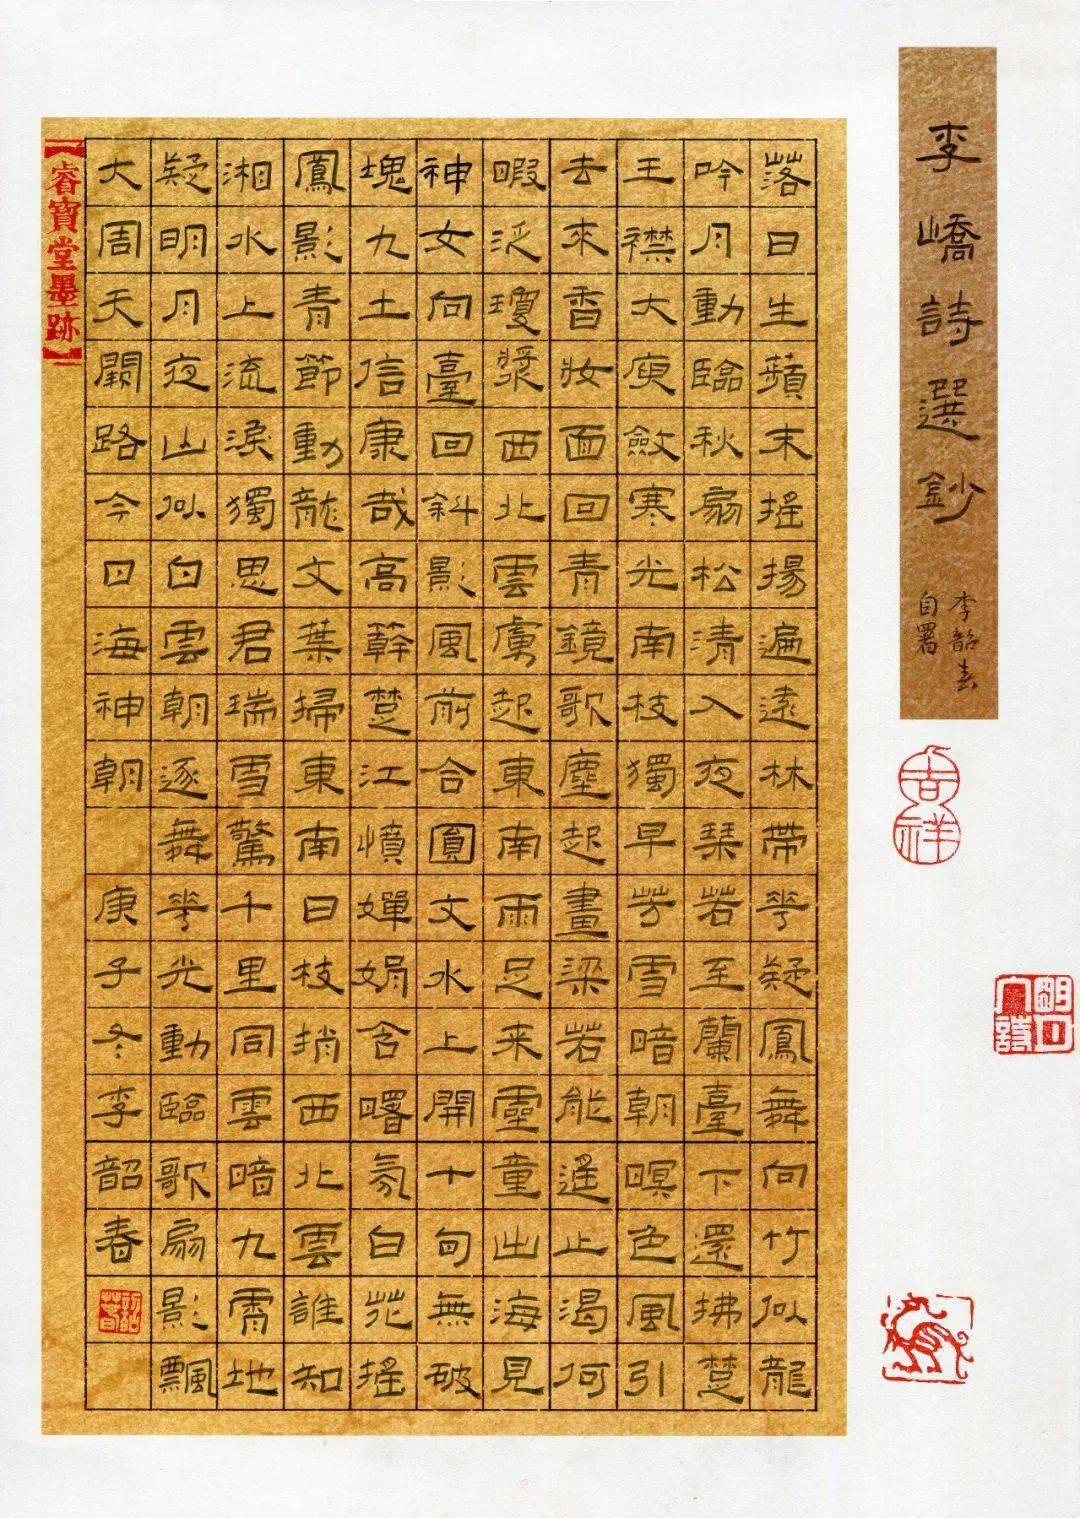 李嶠詩選鈔
李韶春
自署
落日生蘋末搖揚遍遠林帶花疑鳳舞向竹似龍
吟月動臨秋扇松清入夜琴若至蘭臺下還拂楚
王襟大庾斂寒光南枝獨早芳雪暗朝暝色風引
去來香妝面回青鏡歌塵起畫梁若能遙止渴何
暇泛瓊漿西北雲膚起東南雨足来靈童出海見
神女向臺回斜影風前合圓文水上開十旬無破
塊九土信康哉高簳楚江濆嬋娟含曙氛白花搖
鳳影青節動龍文葉掃東南日枝捎西北雲誰知
湘水上流淚獨思君瑞雪驚千里同雲暗九霄地
疑明月夜山似白雲朝逐舞花光動臨歌扇影飄
大周天闕路今日海神朝 庚子冬李韶春
韶春
【睿寶堂墨跡】
吉祥